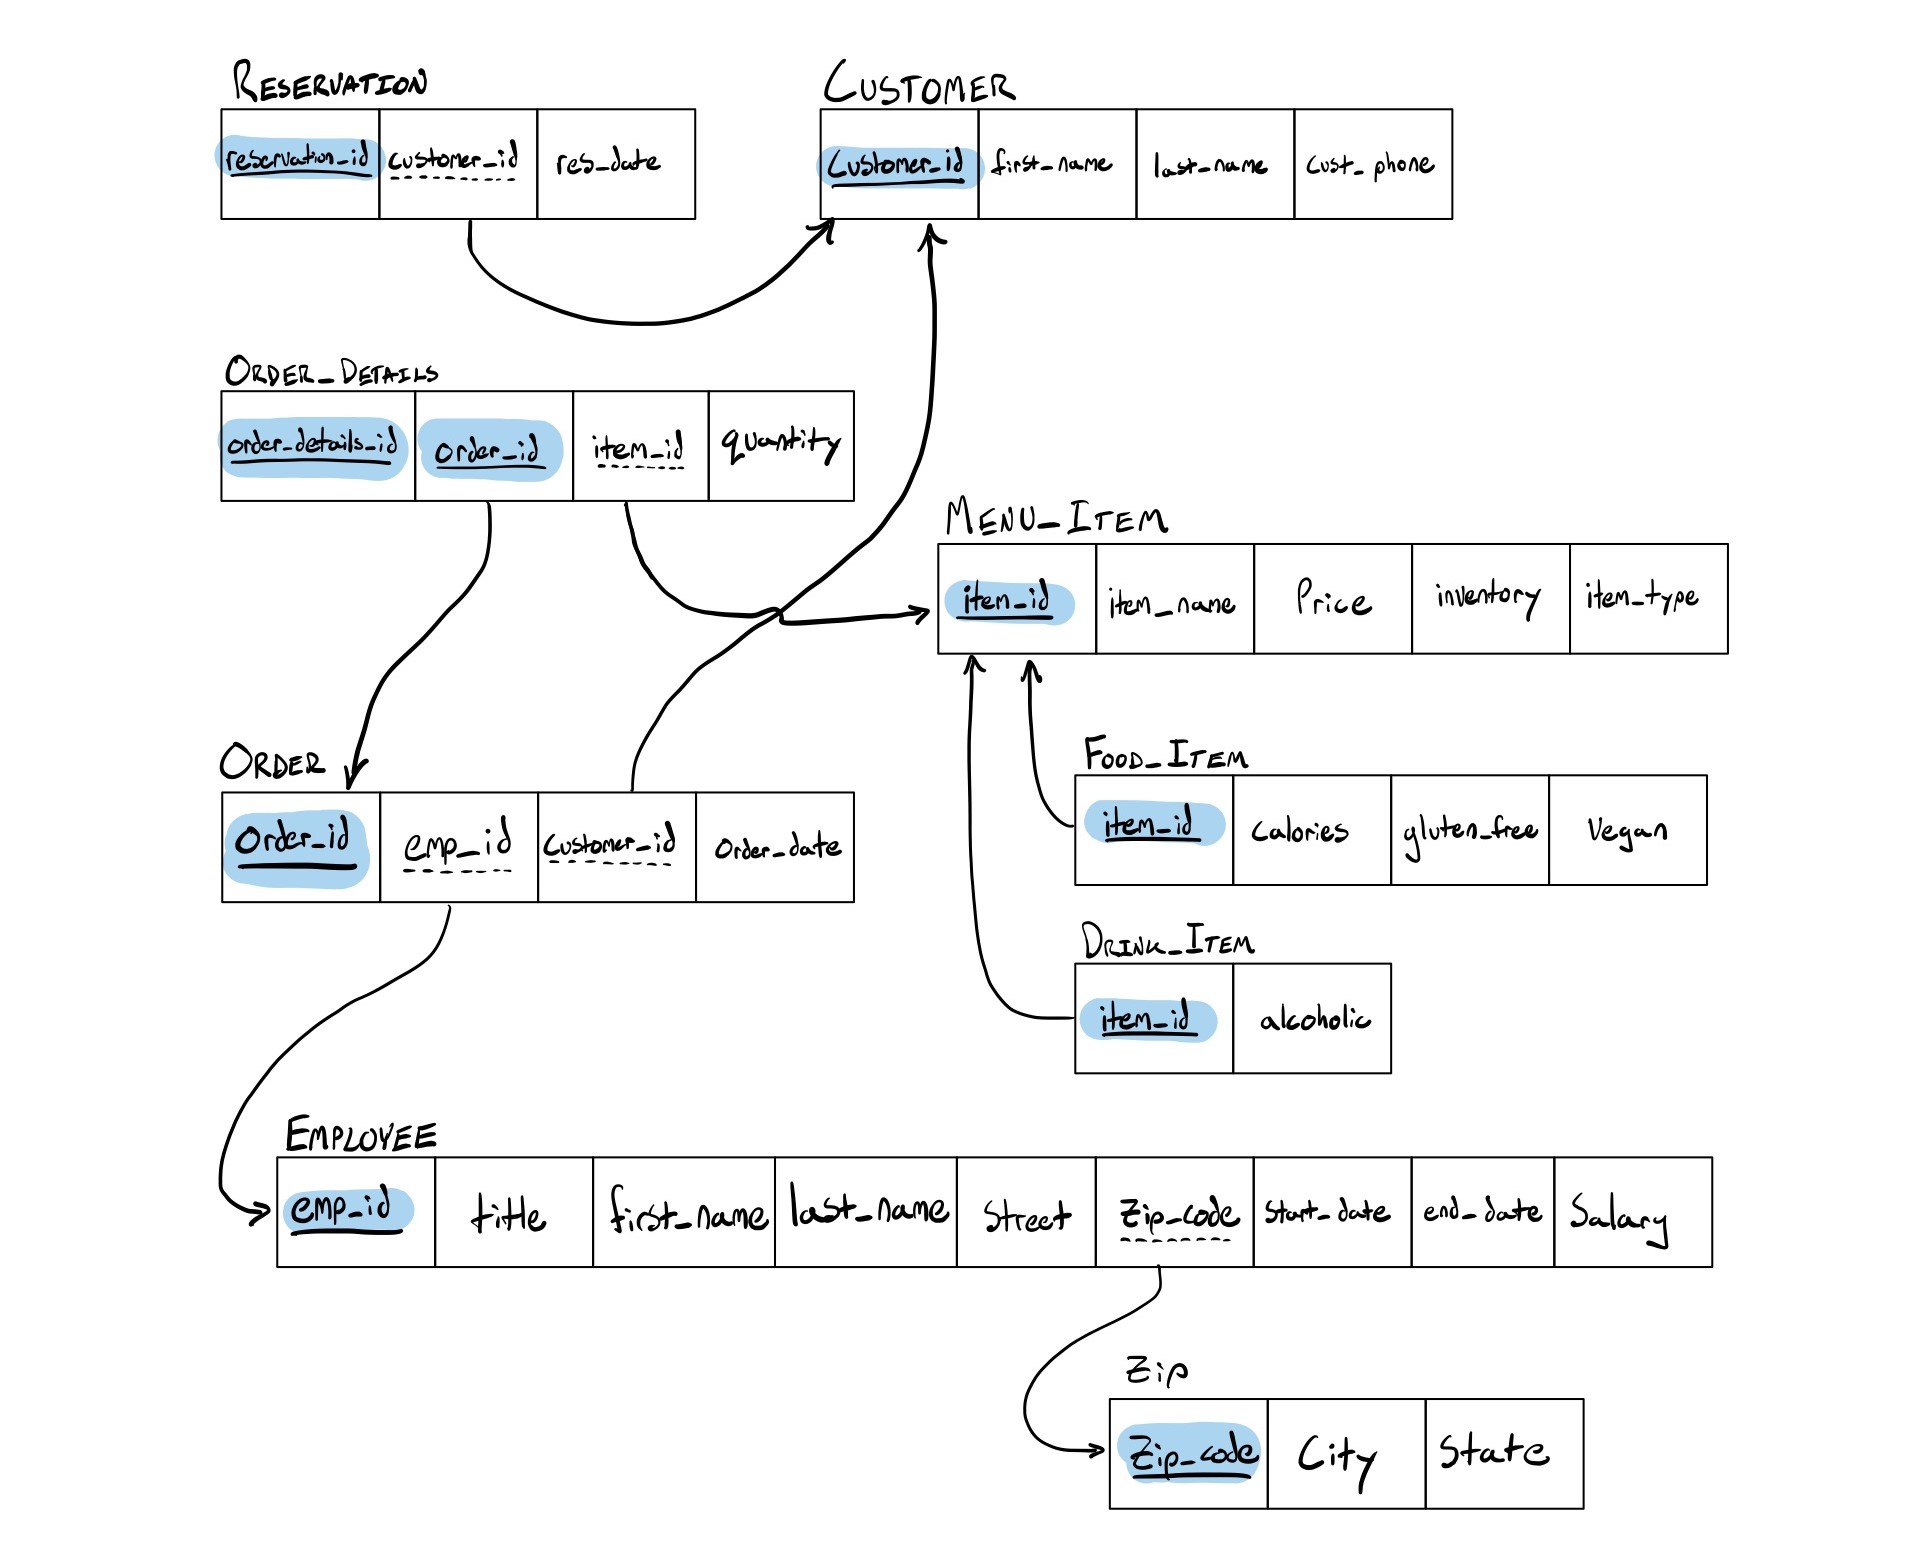 RESERVATION
reservation_id customer_id res_date
CUSTOMER
Customer_id first_name last_name cust_phone
ORDER_DETAILS
order_details_id order_id item_id quantity
MENU_ITEM
item_id item_name Price inventory item_type
ORDER
Order_id emp_id Customer_id Order_date
FOOD_ITEM
item_id Calories gluten_free Vegan
DRINK_ITEM
item_id alcoholic
EMPLOYEE
emp_id title first_name last_name Street Zip_code Start_date end_date Salary
Zip
Zip_code City State